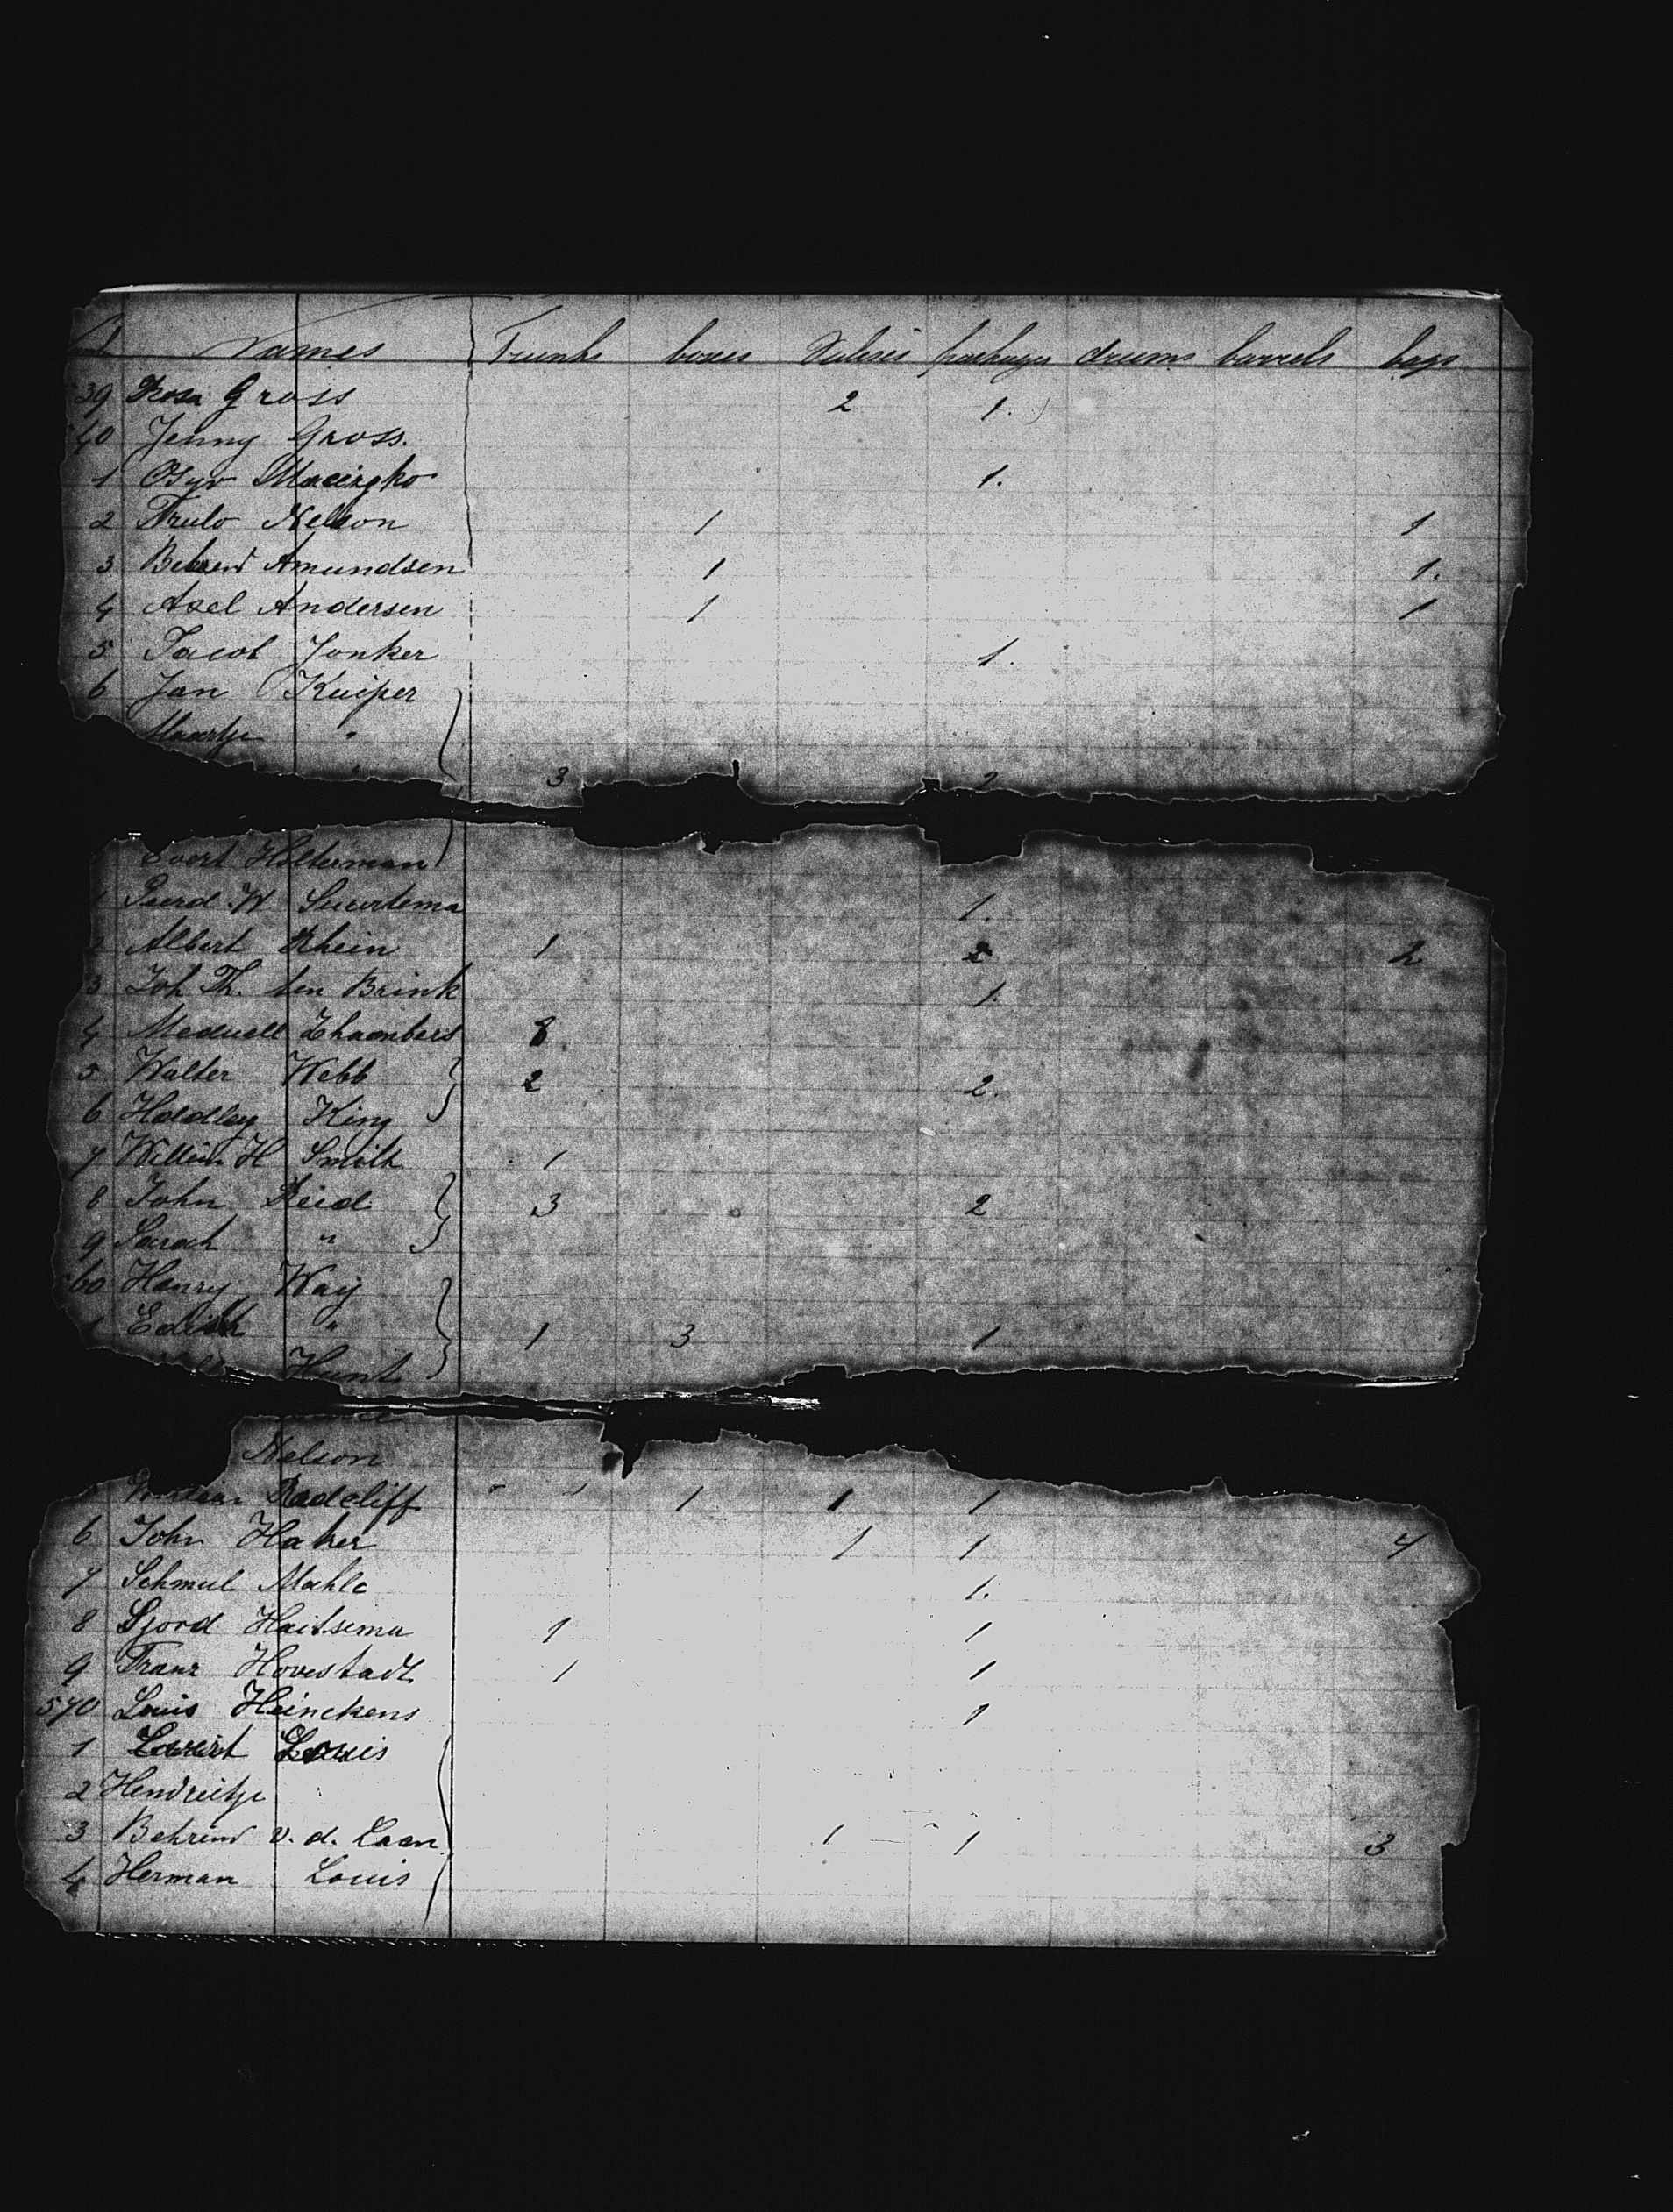 Names Trunks boxes Valises packages drums barrels bags
39 Rosa Gross 2 1.
40 Jenny Gross.
1 Osyr 1.
2 Nelson 1 1
3 Amundsen 1 1.
4 Axel Andersen 1 1
5 Jacob Jonker 1.
6 Jan Kuiper
Maartje "
" 3 2
Evert Holterman
1 W 1.
2 Albert Rhein 1 2 2
3 Joh. Th. ten Brink 1.
4 Chambers
5 Walter Webb 2 2.
6 Headley King
7 Willem H Smith 1
8 John Reid 3 2
9 Sarah "
60 Henry Way
1 Edith " 1 3 1
Hunt
Nelson
Radcliff 1 1 1 1
6 John Haker 1 1 4
7 Schmul Mahle 1.
8 Sjord Haitsema 1 1
9 Franz Hovestadt 1 1
570 Louis Heinckens 1
1 Louis
2 Hendrietje
3 Behrend v. d. Laan 1 1 3
4 Herman Louis